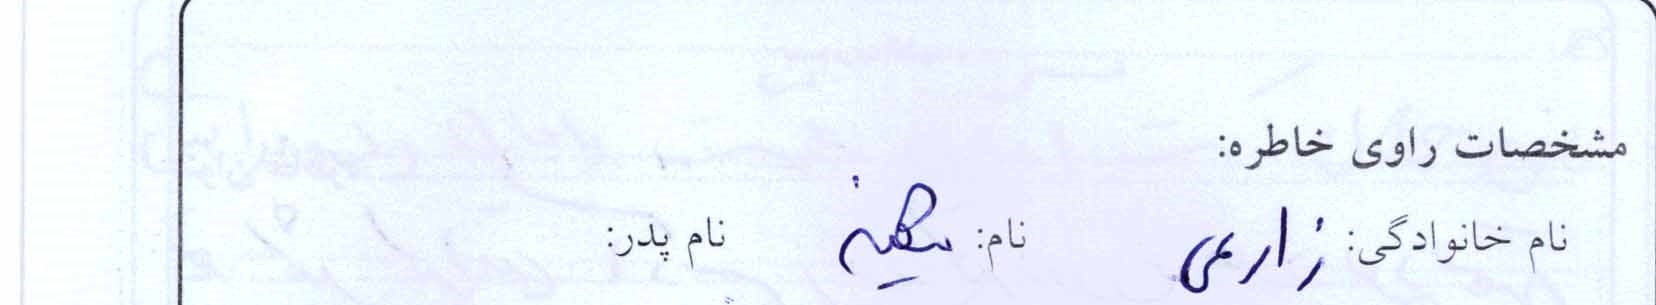 مشخصات راوی خاطره:
نام خانوادگی: زارعی نام: سکینه نام پدر: